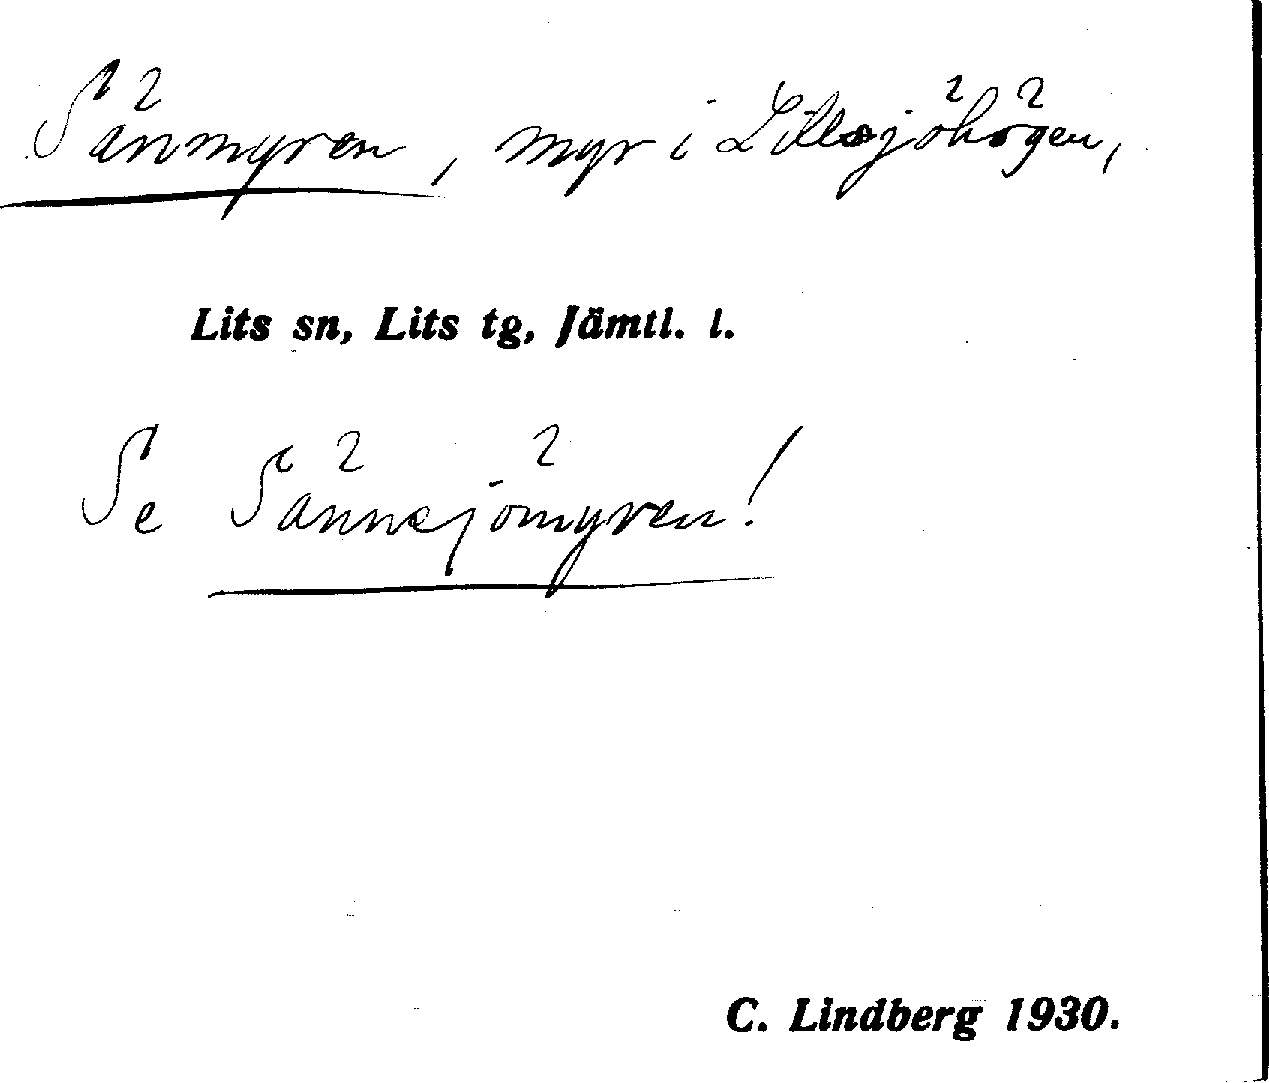 Sänmyren, myr i Lillsjöhögen,
Lits sn, Lits tg, Jämtl. l.
Se Sännsjömyren!
C. Lindberg 1930.